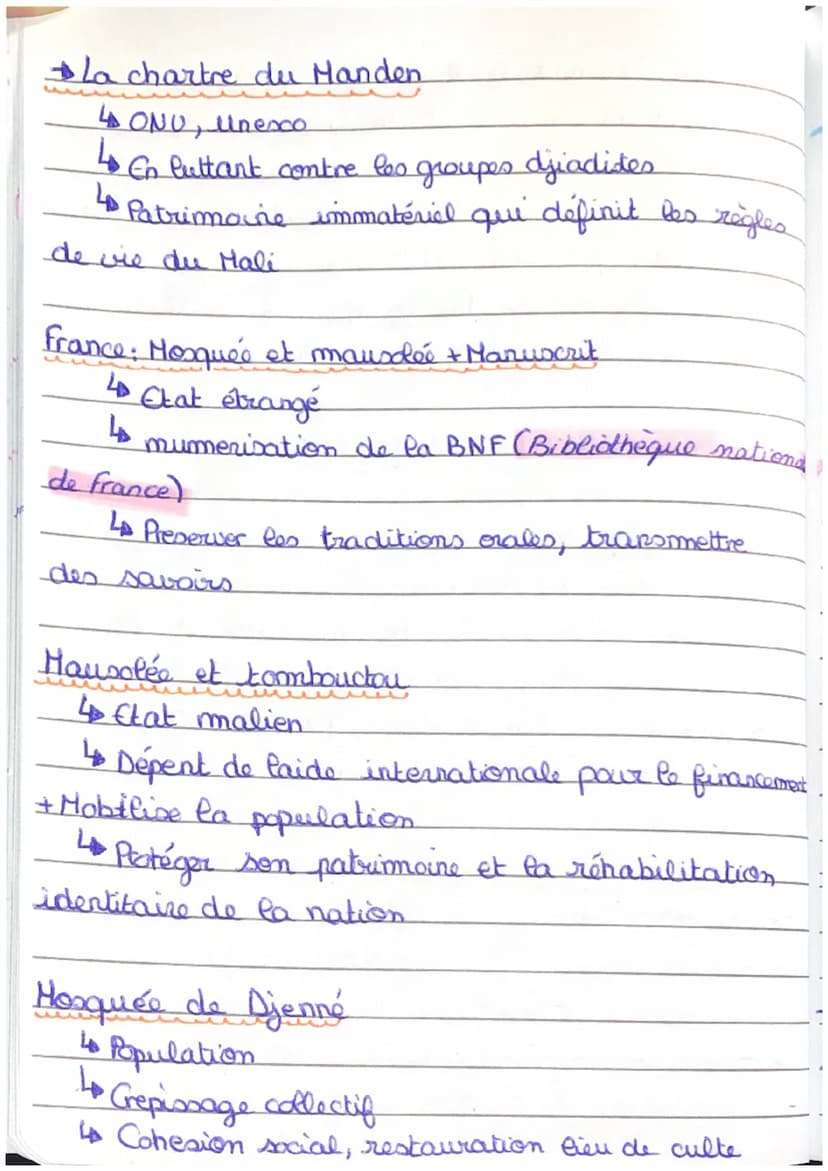 → La chartre du Manden
↳ ONU, Unesco
↳ En luttant contre les groupes djiadistes
↳ Patrimoine immatériel qui définit les règles
de vie du Mali
France : Mosquée et mausoleé + Manuscrit
↳ Etat étrangé
↳ numerisation de la BNF (Bibliothèque nationa
de france)
↳ Preserver les traditions orales, transmettre
des savoirs
Mausolée et tombouctou
↳ Etat malien
↳ Dépent de laide internationale pour le financement
+ Mobilise la population
↳ Protéger son patrimoine et la réhabilitation
identitaire de la nation
Mosquée de Djenné
↳ Population
↳ Crepissage collectif
↳ Cohesion social, restauration lieu de culte